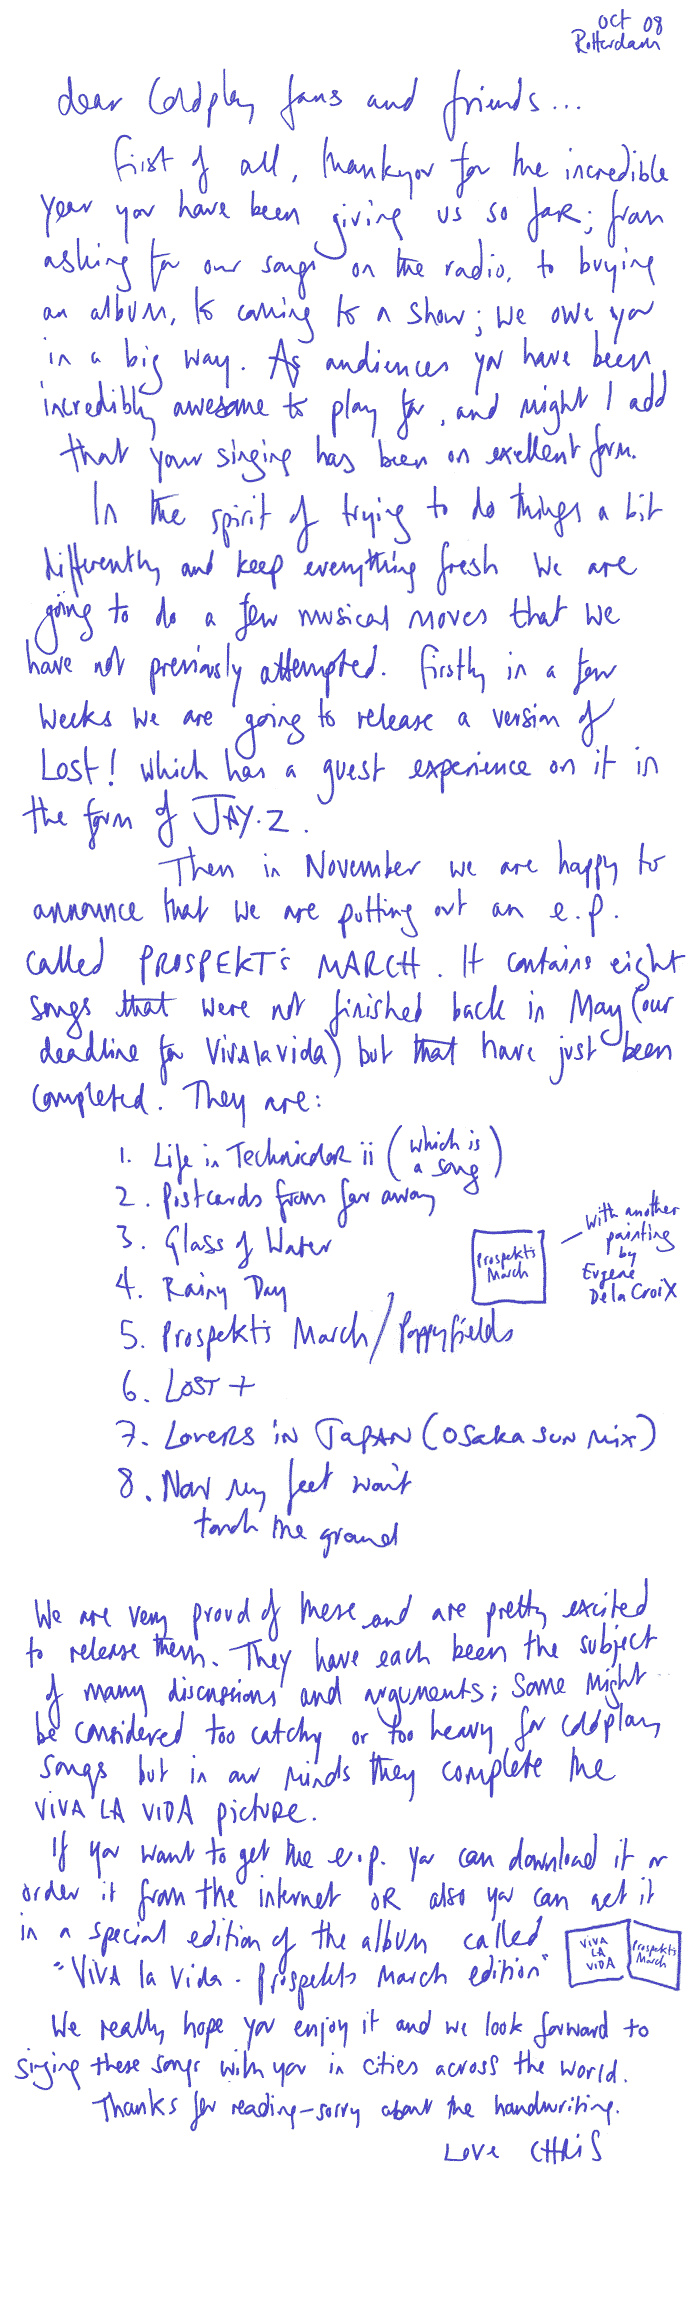 Oct 08
Rotterdam
dear Coldplay fans and friends...
first of all, thankyou for the incredible
year you have been giving us so far; from
asking for our songs on the radio, to buying
an album, to coming to a show; we owe you
in a big way. As audiences you have been
incredibly awesome to play for, and might I add
that your singing has been on exellent form.
In the spirit of trying to do things a bit
differently and keep everything fresh we are
going to do a few musical moves that we
have not previously attempted. Firstly in a few
weeks we are going to release a version of
Lost! which has a guest experience on it in
the form of JAY-Z.
Then in November we are happy to
announce that we are putting out an e.p.
called PROSPEKT's MARCH. It contains eight
songs that were not finished back in May (our
deadline for Viva la vida) but that have just been
completed. They are:
1. Life in Technicolor ii (which is
a song)
2. Postcards from far away
3. Glass of Water
4. Rainy Day
5. Prospekt's March/Poppyfields
6. LOST+
7. Lovers in Japan (Osaka Sun Mix)
8. Now my feet won't
touch the ground
Prospekt's
March
With another
painting
by
Eugene
De la Croix
We are very proud of these and are pretty excited
to release them. They have each been the subject
of many discussions and arguments; some might
be considered too catchy or too heavy for coldplay
songs but in our minds they complete the
VIVA LA VIDA picture.
If you want to get the e.p. you can download it or
order it from the internet OR also you can get it
in a special edition of the album called
"Viva la Vida - Prospekts March edition"
VIVA
LA
VIDA
Prospekts
March
We really hope you enjoy it and we look forward to
singing these songs with you in cities across the world.
Thanks for reading-sorry about the handwriting.
Love CHRIS